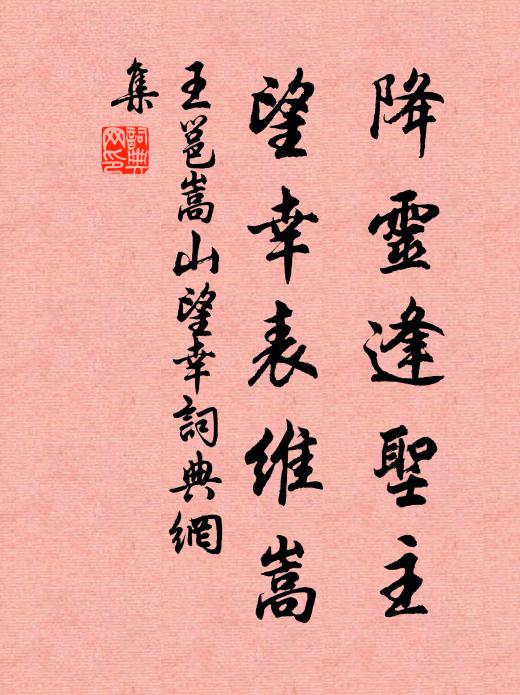 降靈逢聖主
望幸表維嵩
王邕嵩山望幸詞典網
集
詞典网印